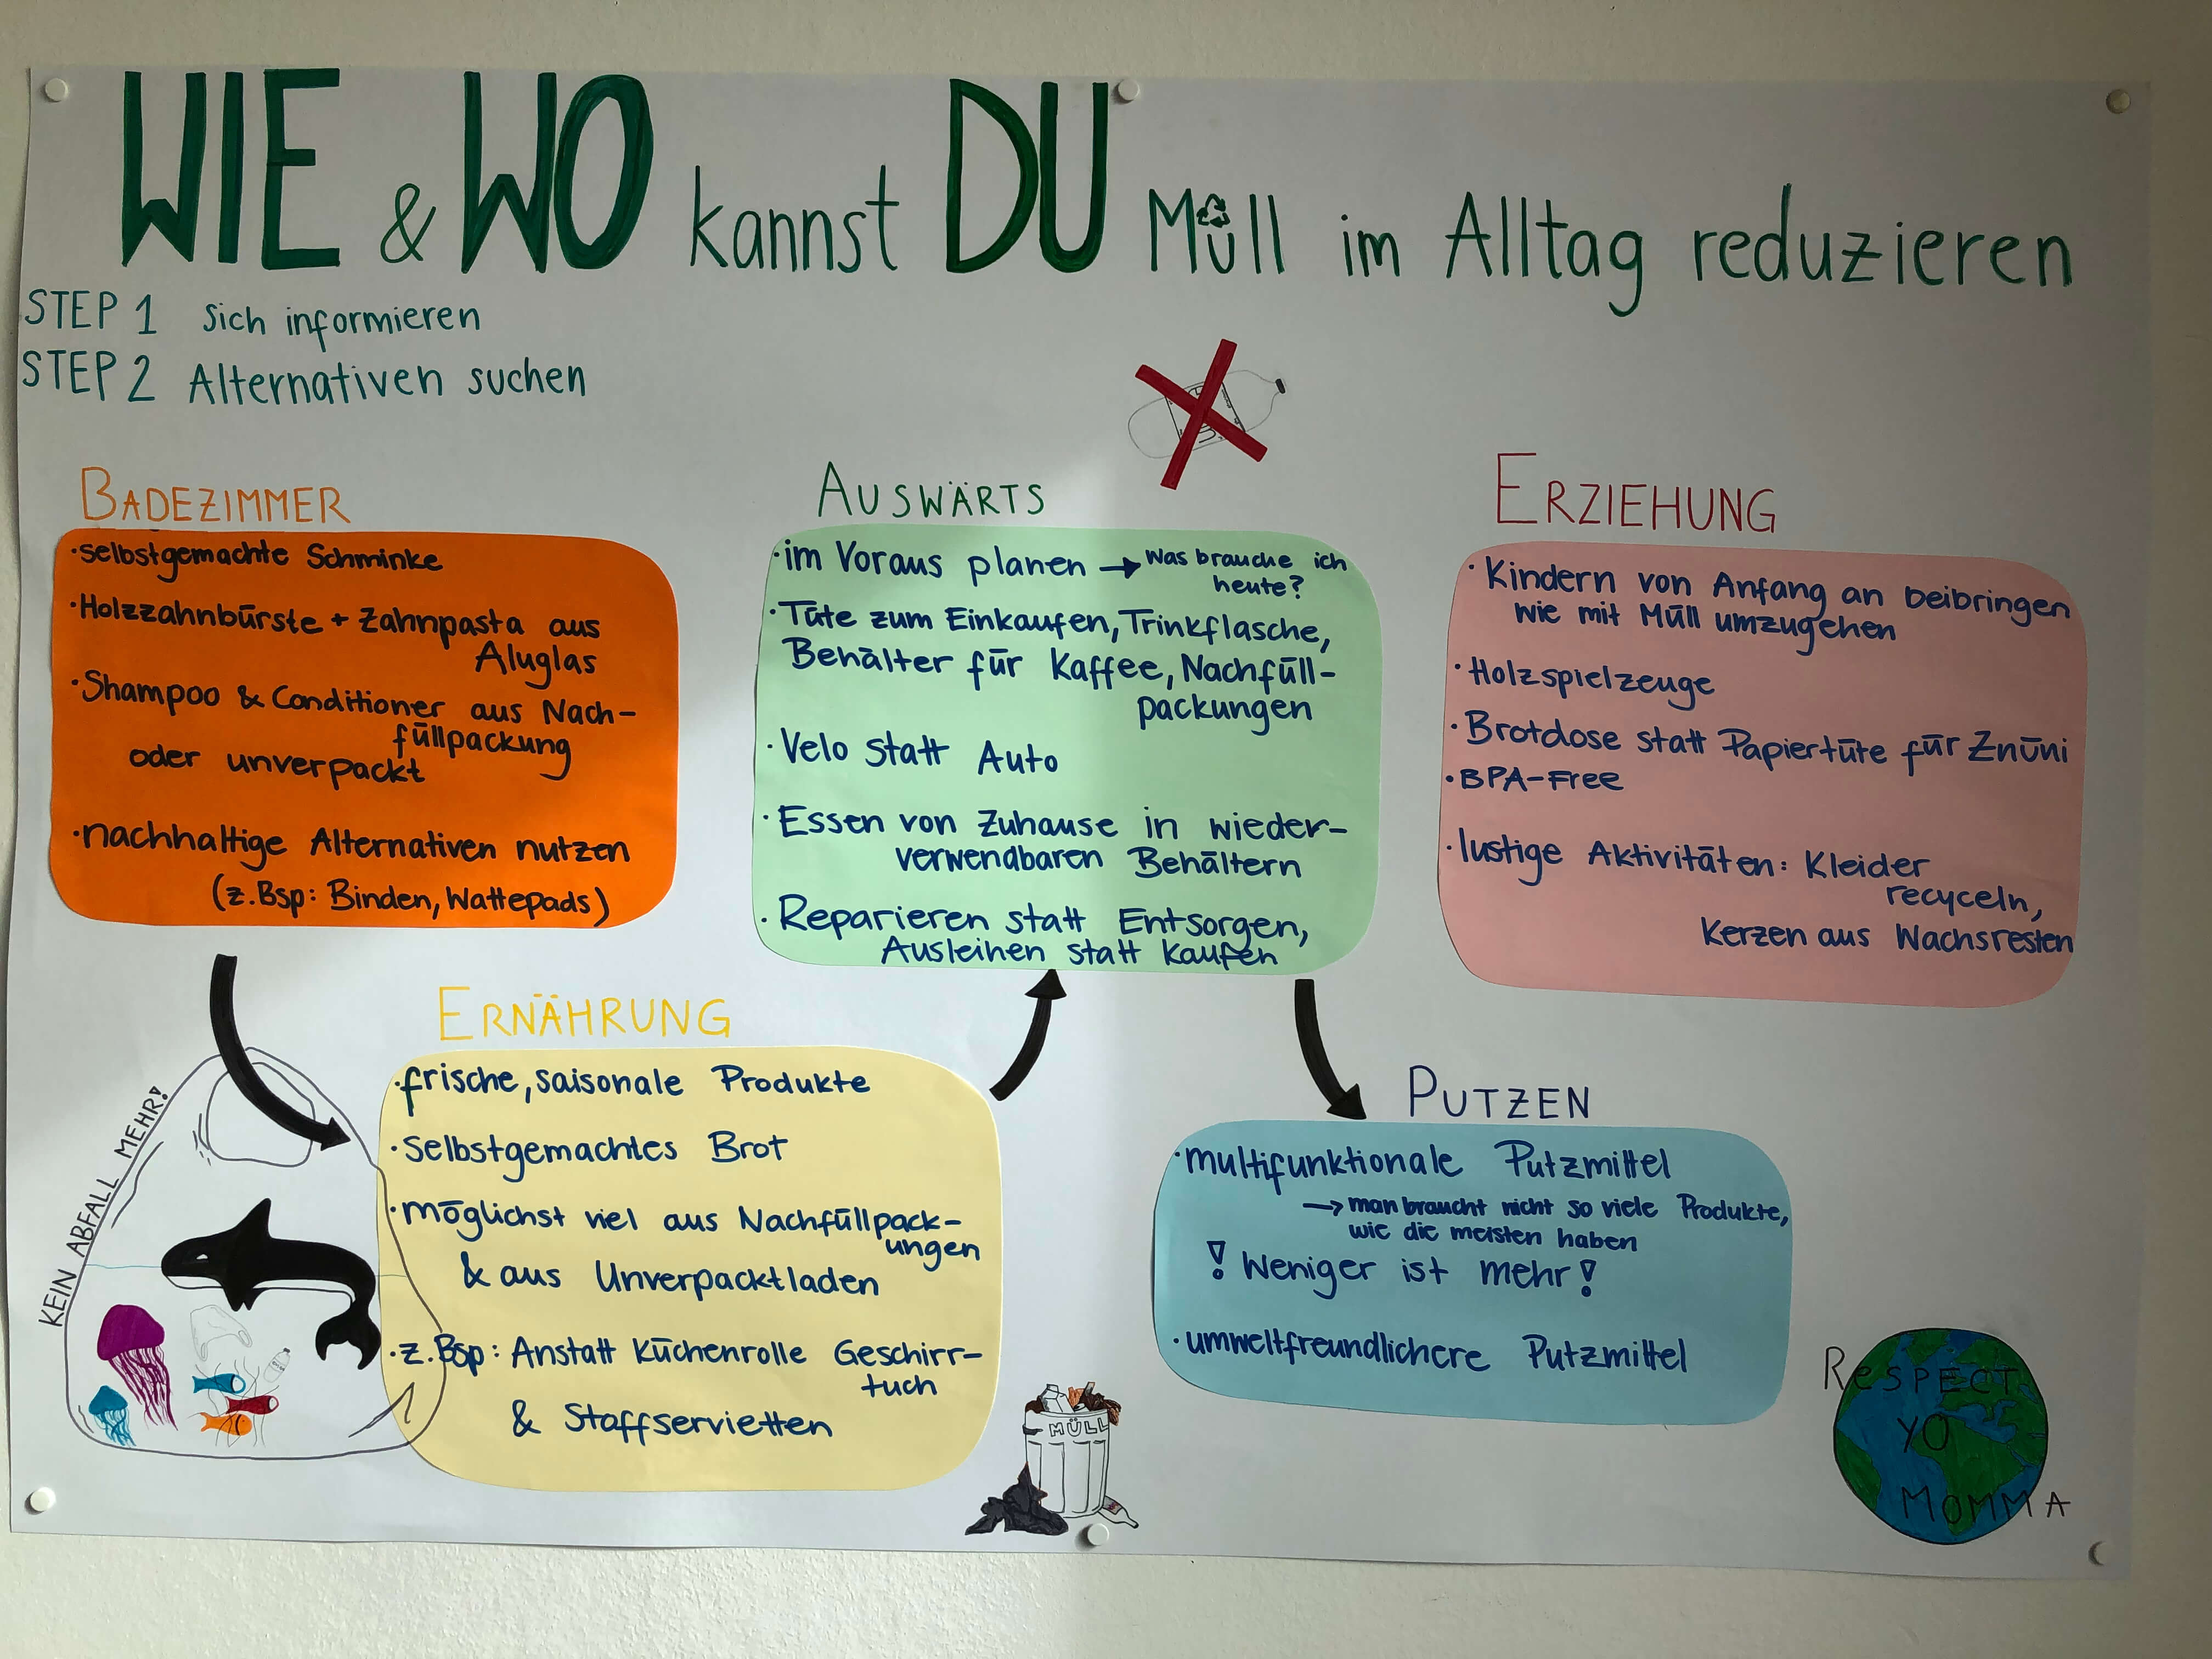 WIE & WO kannst DU Müll im Alltag reduzieren
STEP 1 Sich informieren
STEP 2 Alternativen suchen
BADEZIMMER
·selbstgemachte Schminke
·Holzzahnbürste + Zahnpasta aus
Aluglas
·Shampoo & Conditioner aus Nach-
füllpackung
oder unverpackt
·nachhaltige Alternativen nutzen
(z.Bsp: Binden, Wattepads)
AUSWÄRTS
·im Voraus planen → Was brauche ich
heute?
·Tüte zum Einkaufen, Trinkflasche,
Behälter für Kaffee, Nachfüll-
packungen
·Velo statt Auto
·Essen von Zuhause in wieder-
verwendbaren Behältern
·Reparieren statt Entsorgen,
Ausleihen statt Kaufen
ERZIEHUNG
·Kindern von Anfang an beibringen
wie mit Müll umzugehen
·Holzspielzeuge
·Brotdose statt Papiertüte für Znüni
·BPA-Free
·lustige Aktivitäten: Kleider
recyceln,
Kerzen aus Wachsresten
KEIN ABFALL MEHR!
ERNÄHRUNG
·frische, saisonale Produkte
·selbstgemachtes Brot
·möglichst viel aus Nachfüllpack-
ungen
& aus Unverpacktladen
·z.Bsp: Anstatt Küchenrolle Geschirr-
tuch
& Staffservietten
MÜLL
PUTZEN
·multifunktionale Putzmittel
→ man braucht nicht so viele Produkte,
wie die meisten haben
! Weniger ist mehr!
·umweltfreundlichere Putzmittel
RESPECT
YO
MOMMA